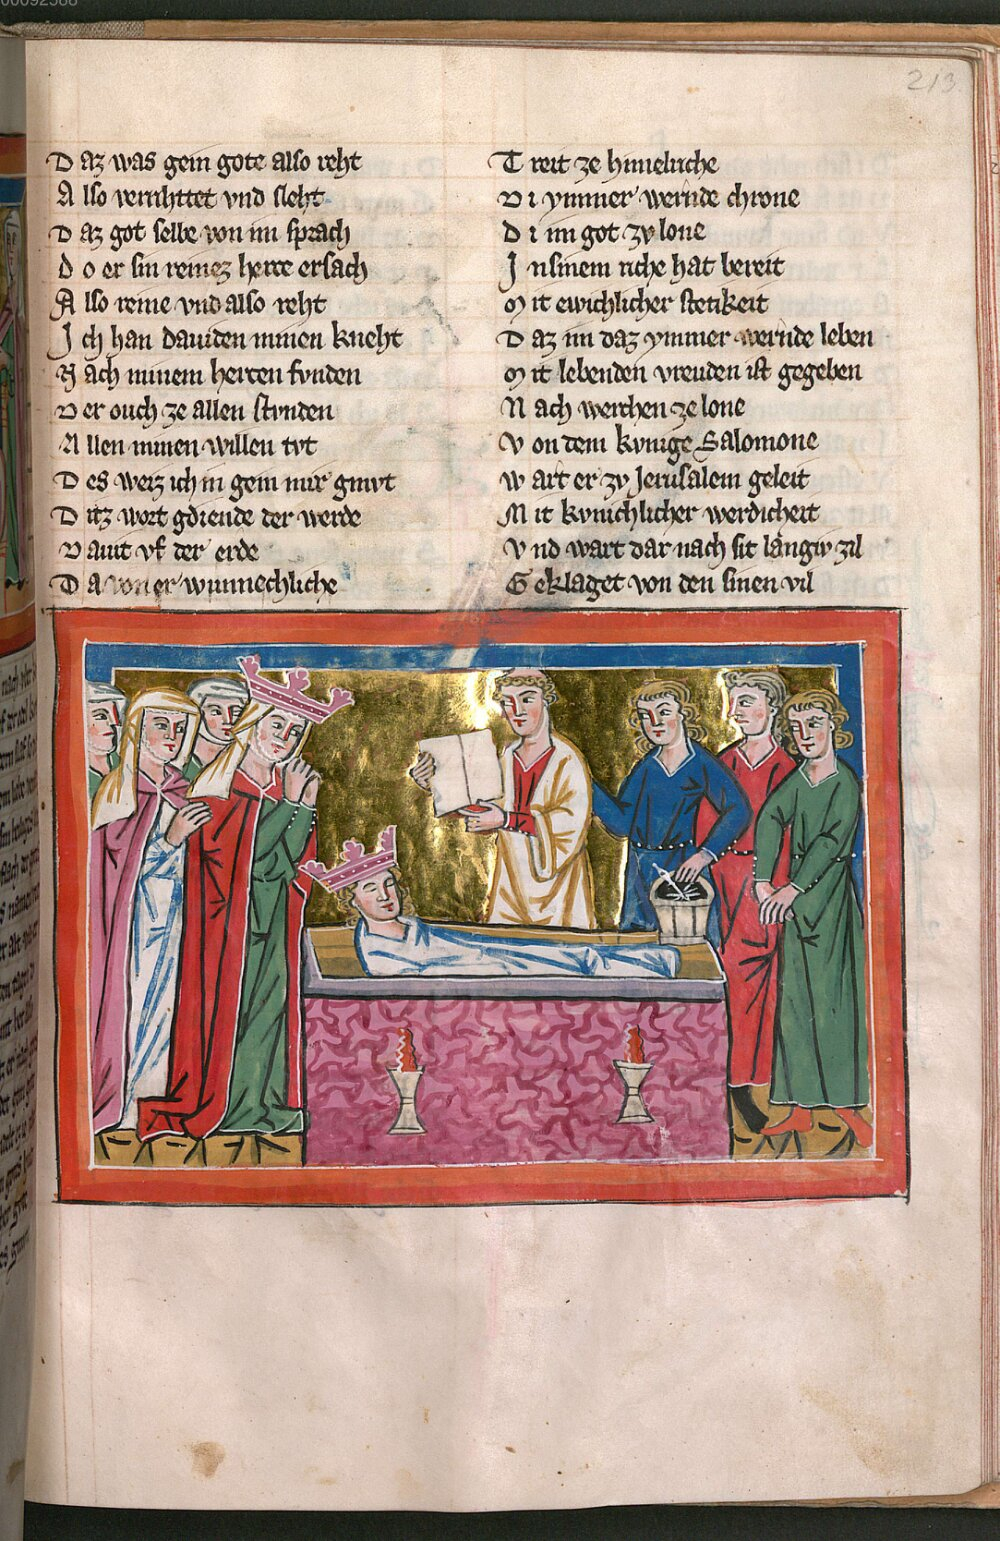 00092588
213
D az was gein gote also reht
A lso verrihttet vnd sleht
D az got selbe von im sprach
d o er sin reinez herce ersach
A lso reine vnd also reht
J ch han dauiden minen kneht
N ach minem hercen fvnden
D er ouch ze allen stvnden
A llen minen willen tvt
D es weiz ich in gein mir gmvt
D itz wort gdiende der werde
D auit vf der erde
D a von er wunnechliche
T reit ze himelriche
D i ymmer wernde chrone
d i im got zv lone
J n sinem riche hat bereit
M it ewichlicher stetikeit
D az im daz ymmer wernde leben
M it lebenden vreuden ist gegeben
N ach werchen ze lone
V on dem kvnige Salomone
W art er zv Jerusalem geleit
M it kvnichlicher werdicheit
V nd wart dar nach sit langiv zil
G eklaget von den sinen vil